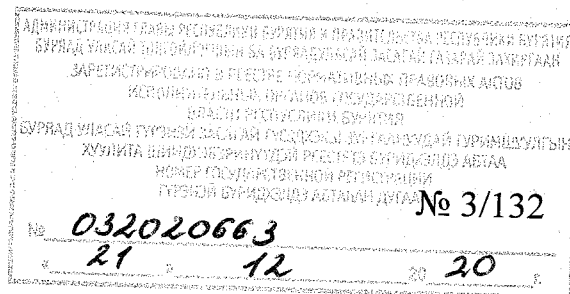 АДМИНИСТРАЦИЯ ГЛАВЫ РЕСПУБЛИКИ БУРЯТИЯ И ПРАВИТЕЛЬСТВА РЕСПУБЛИКИ БУРЯТИЯ
БУРЯАД УЛАСАЙ БА БУРЯАД УЛАСАЙ ЗАСАГАЙ ГАЗАРАЙ ЗАХИРГААН
ЗАРЕГИСТРИРОВАНО В РЕЕСТРЕ НОРМАТИВНЫХ ПРАВОВЫХ АКТОВ
ИСПОЛНИТЕЛЬНЫХ ОРГАНОВ ГОСУДАРСТВЕННОЙ
ВЛАСТИ РЕСПУБЛИКИ БУРЯТИЯ
БУРЯАД УЛАСАЙ ГҮРЭНЭЙ ЗАСАГАЙ ГҮЙСЭДХЭХЫ ЗУРГААНУУДАЙ ГУРИМШУУЛГЫН
ХУУЛИТА ШИИДХЭБЭРИНҮҮДЭЙ РЕЕСТРТЭ БҮРИДХЭЛДЭ АБТАА
НОМЕР ГОСУДАРСТВЕННОЙ РЕГИСТРАЦИИ
ГҮРЭНЭЙ БҮРИДХЭЛДЭ АБТАҺАН ДУГААР
№ 3/132
№ 032020663
« 21 » 12 20 20 г.